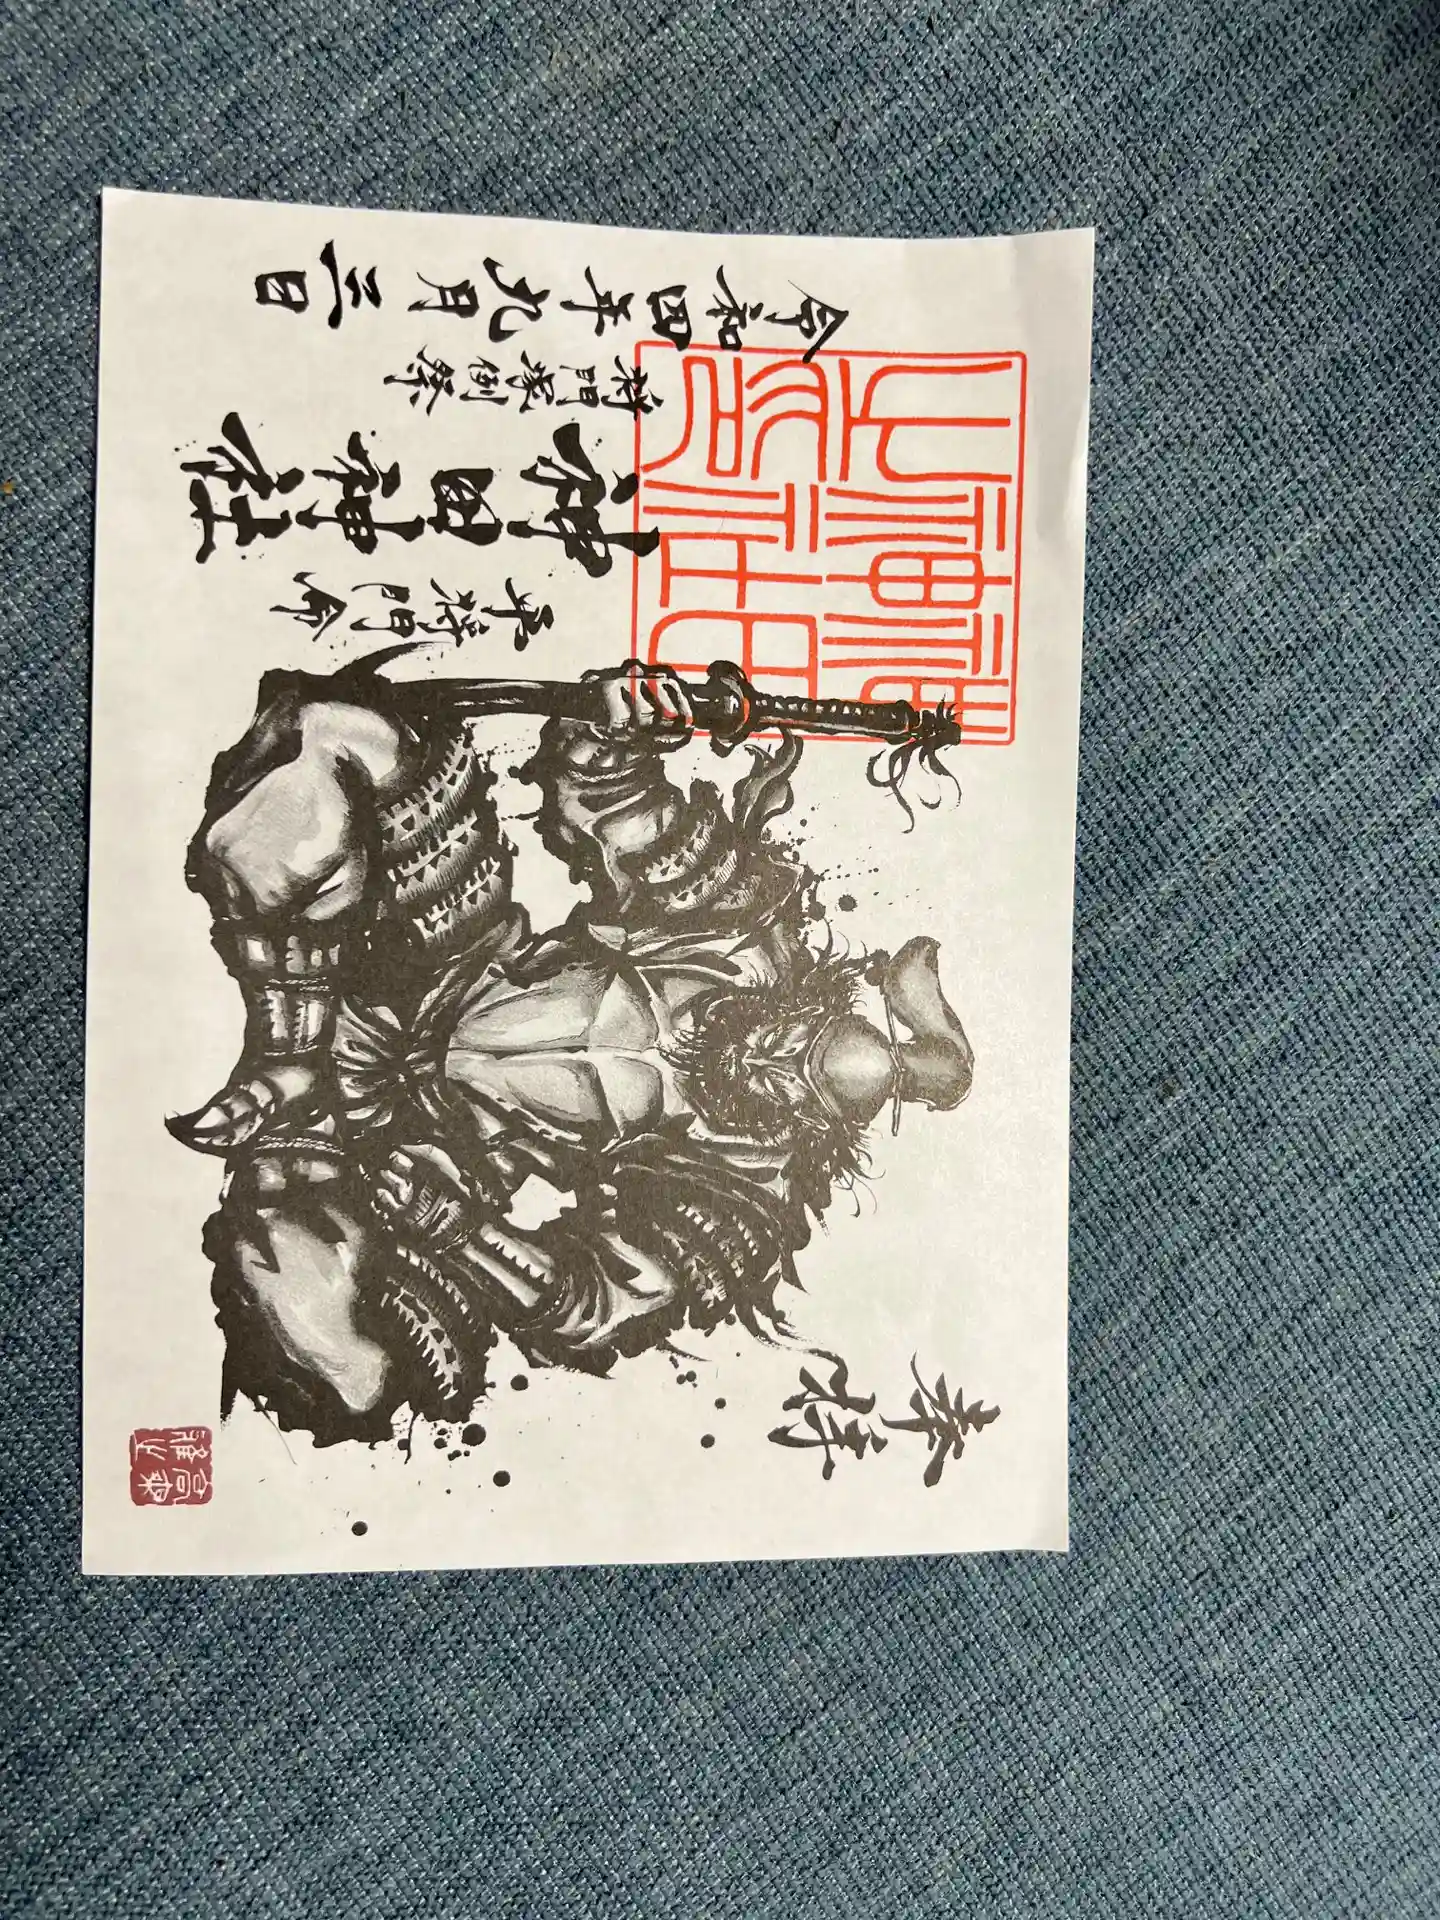 奉拝
平将門命
神田神社
将門塚例祭
令和四年九月三日
神田神社之印